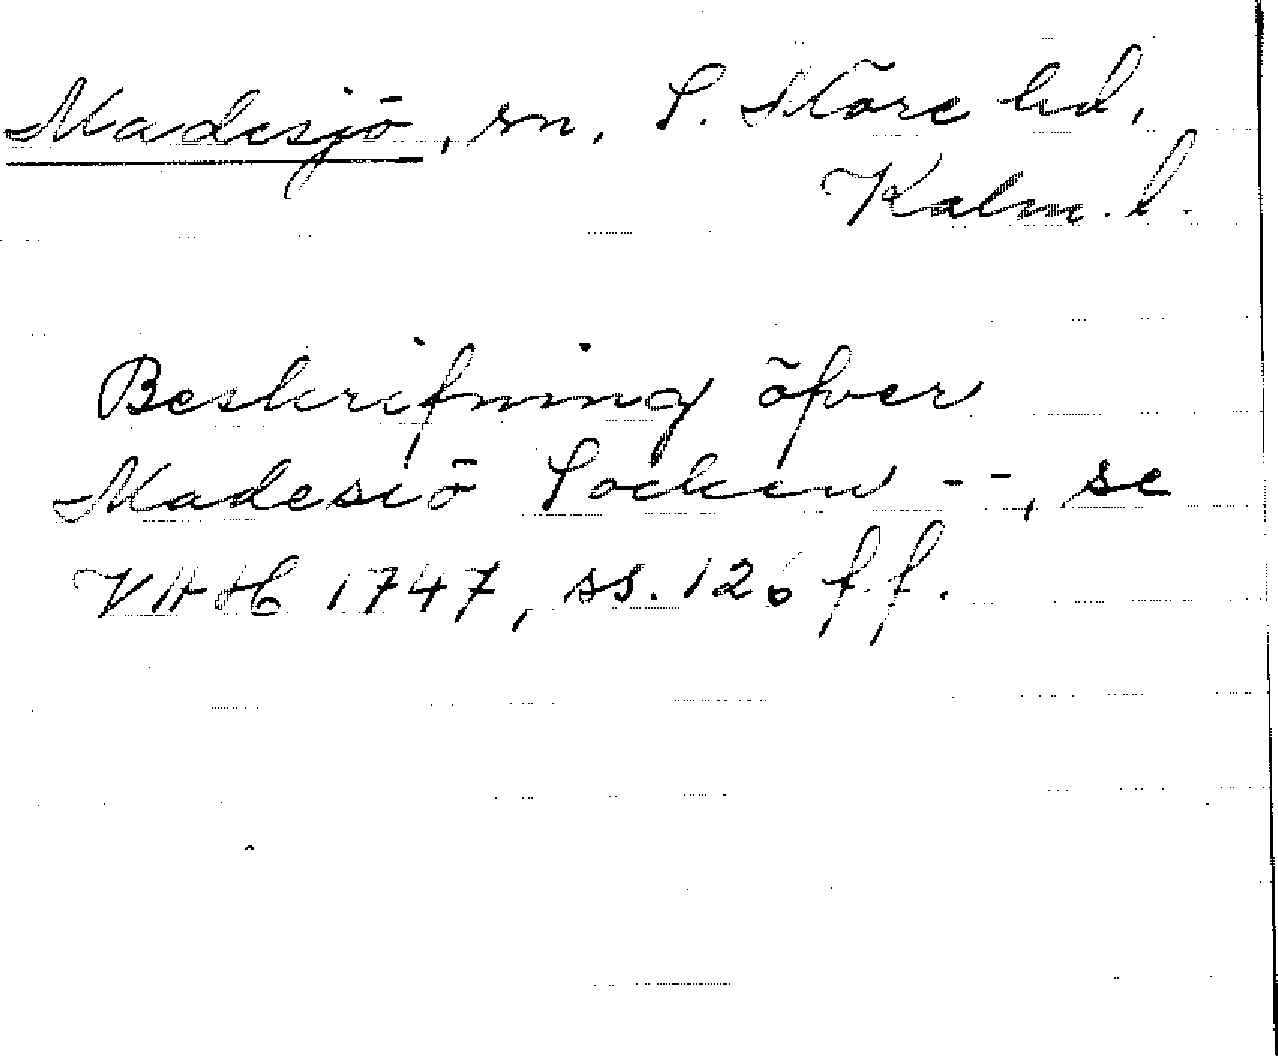 Madesjö, sn, S. Möre hd,
Kalm. l.
Beskrifning öfver
Madesiö Socken --, se
VAH 1747, ss. 126 ff.